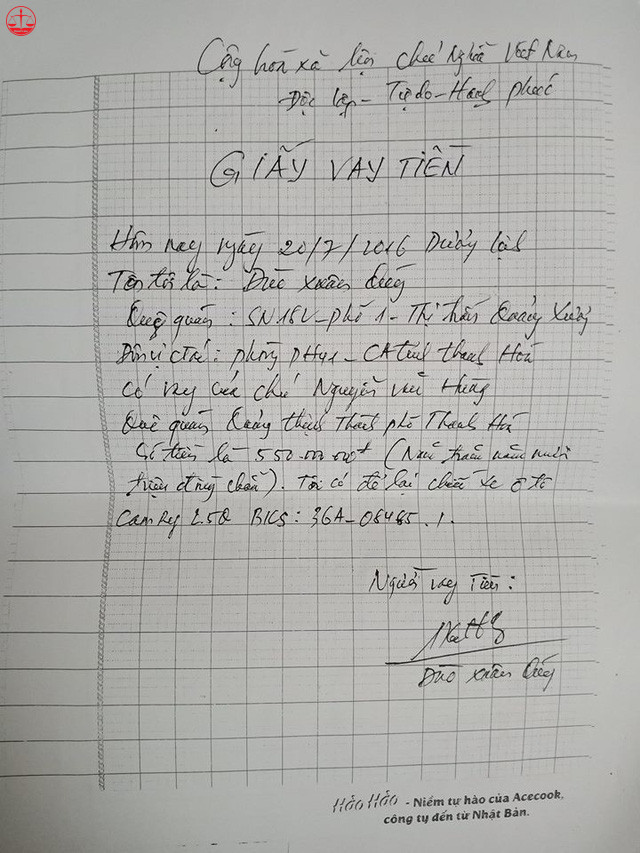 Cộng hòa xã hội chủ nghĩa Việt Nam
Độc lập - Tự do - Hạnh phúc
GIẤY VAY TIỀN
Hôm nay ngày 20/7/2016 Dương lịch
Tên tôi là: Đào Xuân
Quê quán: SN 18V - phố 1 - Thị trấn Quảng Xương
Đơn vị c tác: phòng PH41 - CA tỉnh Thanh Hoá
Có vay của chú Nguyễn Hưng
Quê quán Quảng Thịnh Thành phố Thanh Hoá
Số tiền là 550.000.000đ (Năm trăm năm mươi
triệu đồng chẵn). Tôi có để lại chiếc xe ô tô
CamRy 2.5Q BKS: 36A-08485.1.
Người vay Tiền:
Đào Xuân
Hảo Hảo - Niềm tự hào của Acecook,
công ty đến từ Nhật Bản.